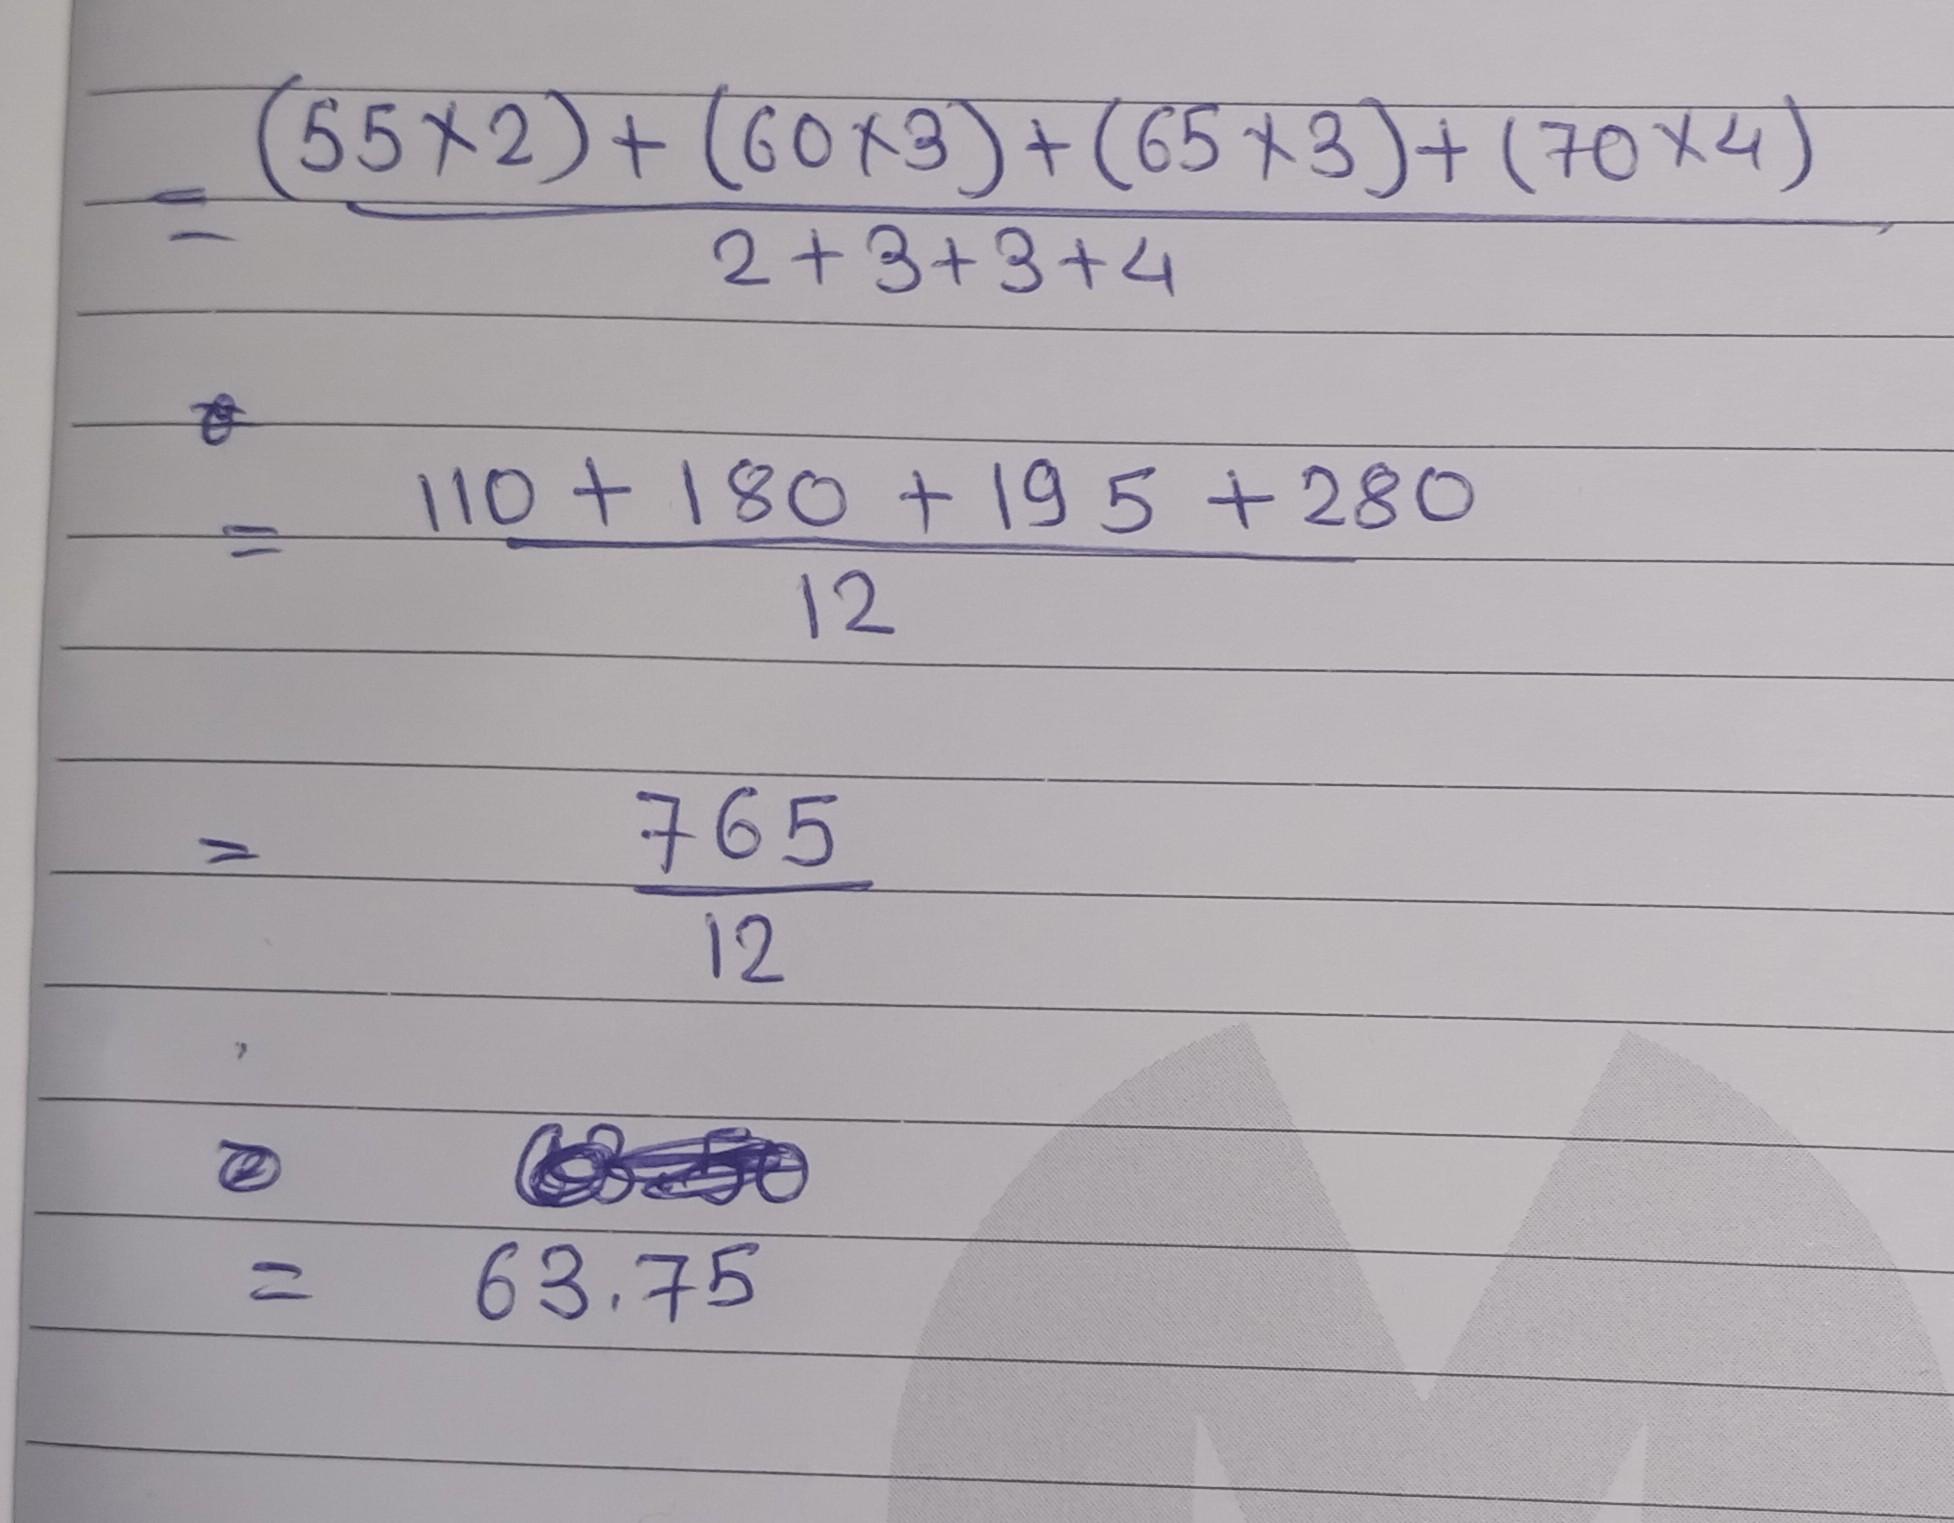 = (55×2)+(60×3)+(65×3)+(70×4)
2+3+3+4
= 110 + 180 + 195 + 280
12
= 765
12
= 63.75